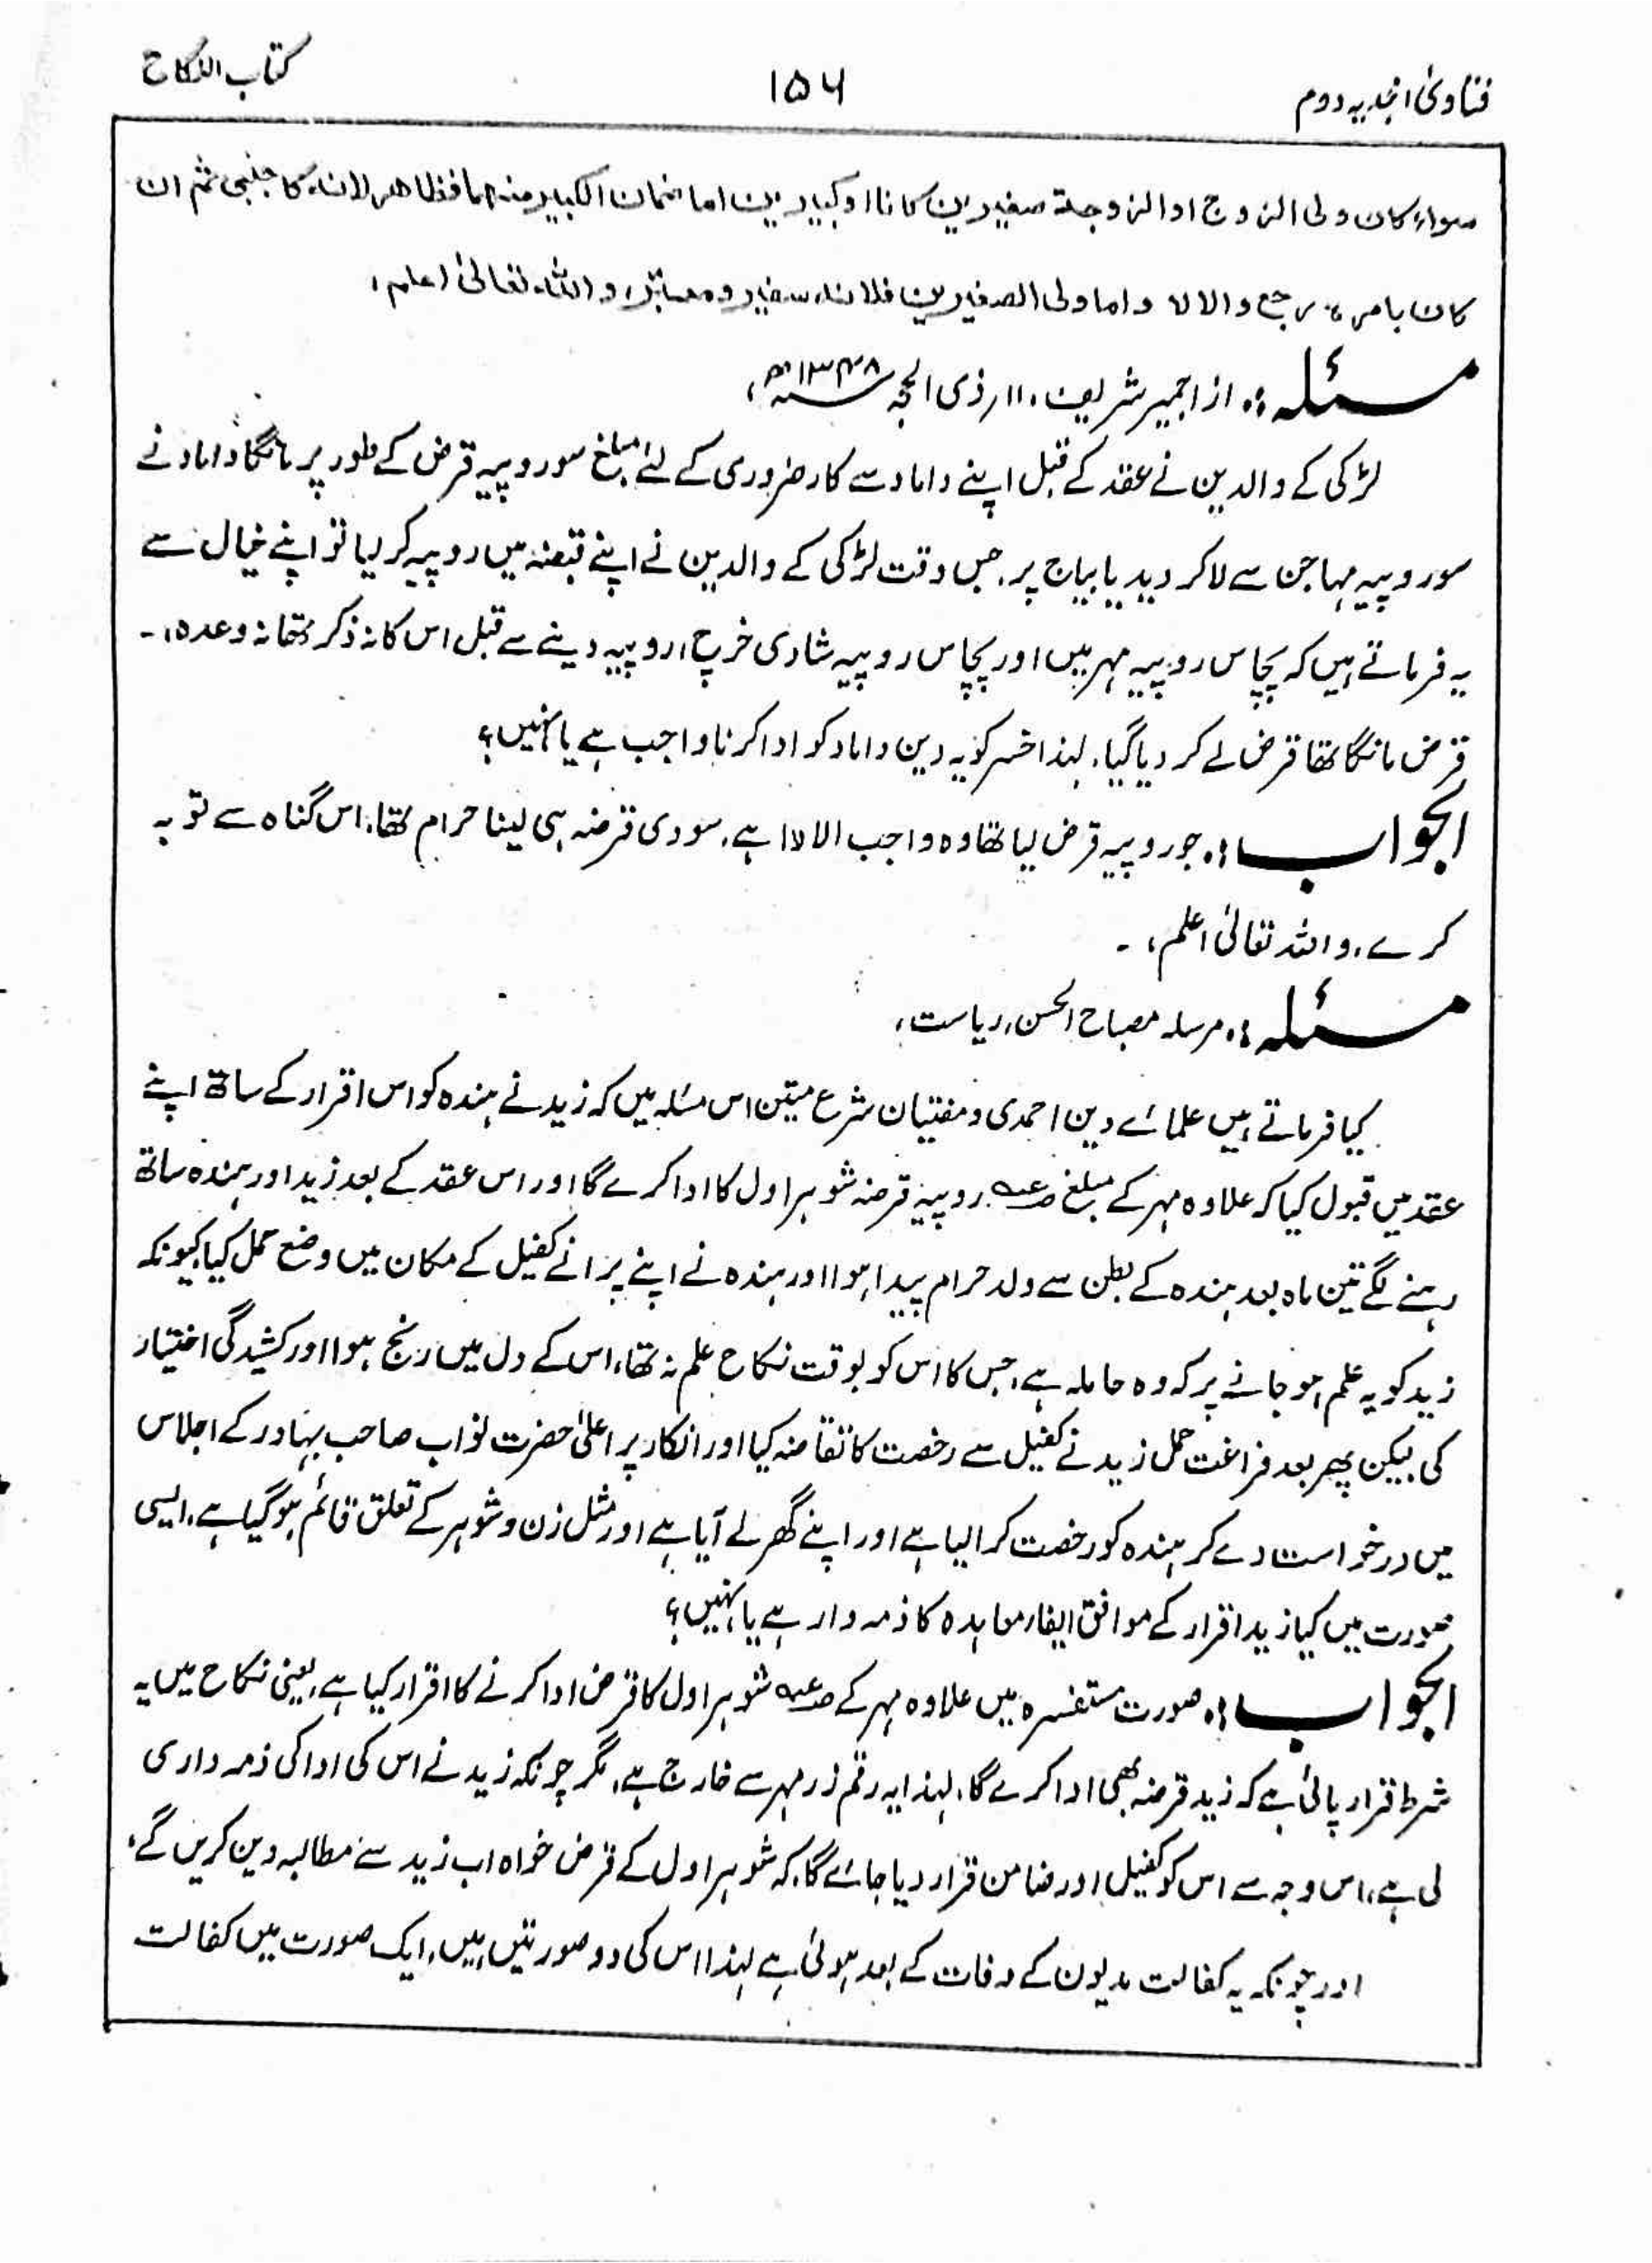 فتاویٰ امجدیہ دوم ۱۵۶ کتاب النکاح
سواء کان ولی الزوج اوالزوجۃ صغیرین کانا اوکبیرین اما ضمان الکبیر منہما فظاھر لانہ کاجنبی ثم ان
کان بامرہ رجع والا لا واما ولی الصغیرین فلانہ سفیر ومعبّر، واللہ تعالیٰ اعلم،
مسئلہ :۔ از اجمیر شریف، ۱۱؍ ذی الحجہ ۱۳۴۸ھ،
لڑکی کے والدین نے عقد کے قبل اپنے داماد سے کار ضروری کے لئے مبلغ سو روپیہ قرض کے طور پر مانگا داماد نے
سو روپیہ مہاجن سے لاکر دیدیا بیاج پر، جس وقت لڑکی کے والدین نے اپنے قبضہ میں روپیہ کرلیا تو اپنے خیال سے
یہ فرماتے ہیں کہ پچاس روپیہ مہر میں اور پچاس روپیہ شادی خرچ، روپیہ دینے سے قبل اس کا نہ ذکر تھا نہ وعدہ،۔
قرض مانگا تھا قرض لے کر دیا گیا، لہذا خسر کو یہ دین داماد کو ادا کرنا واجب ہے یا نہیں؟
الجواب :۔ جو روپیہ قرض لیا تھا وہ واجب الادا ہے، سودی قرضہ ہی لینا حرام تھا، اس گناہ سے توبہ
کرے، واللہ تعالیٰ اعلم،۔
مسئلہ :۔ مرسلہ مصباح الحسن، ریاست،
کیا فرماتے ہیں علمائے دین احمدی ومفتیان شرع متین اس مسئلہ میں کہ زید نے ہندہ کو اس اقرار کے ساتھ اپنے
عقد میں قبول کیا کہ علاوہ مہر کے مبلغ روپیہ قرضہ شوہر اول کا ادا کرے گا اور اس عقد کے بعد زید اور ہندہ ساتھ
رہنے لگے تین ماہ بعد ہندہ کے بطن سے ولد حرام پیدا ہوا اور ہندہ نے اپنے پرانے کفیل کے مکان میں وضع حمل کیا کیونکہ
زید کو یہ علم ہو جانے پر کہ وہ حاملہ ہے، جس کا اس کو بوقت نکاح علم نہ تھا، اس کے دل میں رنج ہوا اور کشیدگی اختیار
کی لیکن پھر بعد فراغت حمل زید نے کفیل سے رخصت کا تقاضہ کیا اور انکار پر اعلیٰ حضرت نواب صاحب بہادر کے اجلاس
میں درخواست دے کر ہندہ کو رخصت کرالیا ہے اور اپنے گھر لے آیا ہے اور مثل زن وشوہر کے تعلق قائم ہوگیا ہے، ایسی
صورت میں کیا زید اقرار کے موافق ایفاء معاہدہ کا ذمہ دار ہے یا نہیں؟
الجواب :۔ صورت مستفسرہ میں علاوہ مہر کے شوہر اول کا قرض ادا کرنے کا اقرار کیا ہے، یعنی نکاح میں یہ
شرط قرار پائی ہے کہ زید قرضہ بھی ادا کرے گا، لہذا یہ رقم زر مہر سے خارج ہے، مگر چونکہ زید نے اس کی ادا کی ذمہ داری
لی ہے، اس وجہ سے اس کو کفیل اور ضامن قرار دیا جائے گا، کہ شوہر اول کے قرض خواہ اب زید سے مطالبہ دین کریں گے،
اور چونکہ یہ کفالت مدیون کے وفات کے بعد ہوئی ہے لہذا اس کی دو صورتیں ہیں، ایک صورت میں کفالت